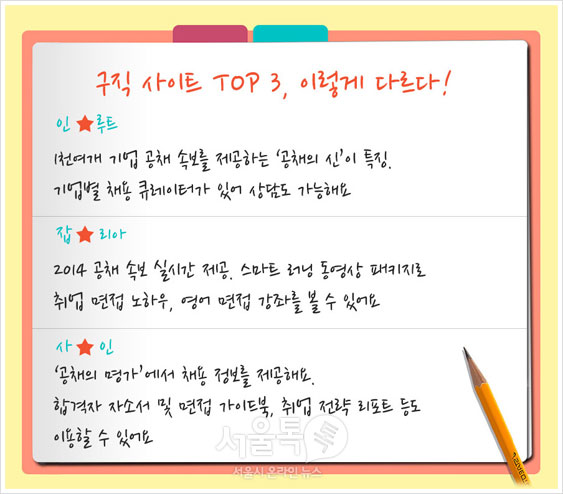 구직 사이트 TOP 3, 이렇게 다르다!
인★루트
1천여개 기업 공채 속보를 제공하는 '공채의 신'이 특징.
기업별 채용 큐레이터가 있어 상담도 가능해요
잡★리아
2014 공채 속보 실시간 제공. 스마트 러닝 동영상 패키지로
취업 면접 노하우, 영어 면접 강좌를 볼 수 있어요
사★인
'공채의 명가'에서 채용 정보를 제공해요.
합격자 자소서 및 면접 가이드북, 취업 전략 리포트 등도
이용할 수 있어요
서울톡톡
서울시 온라인 뉴스